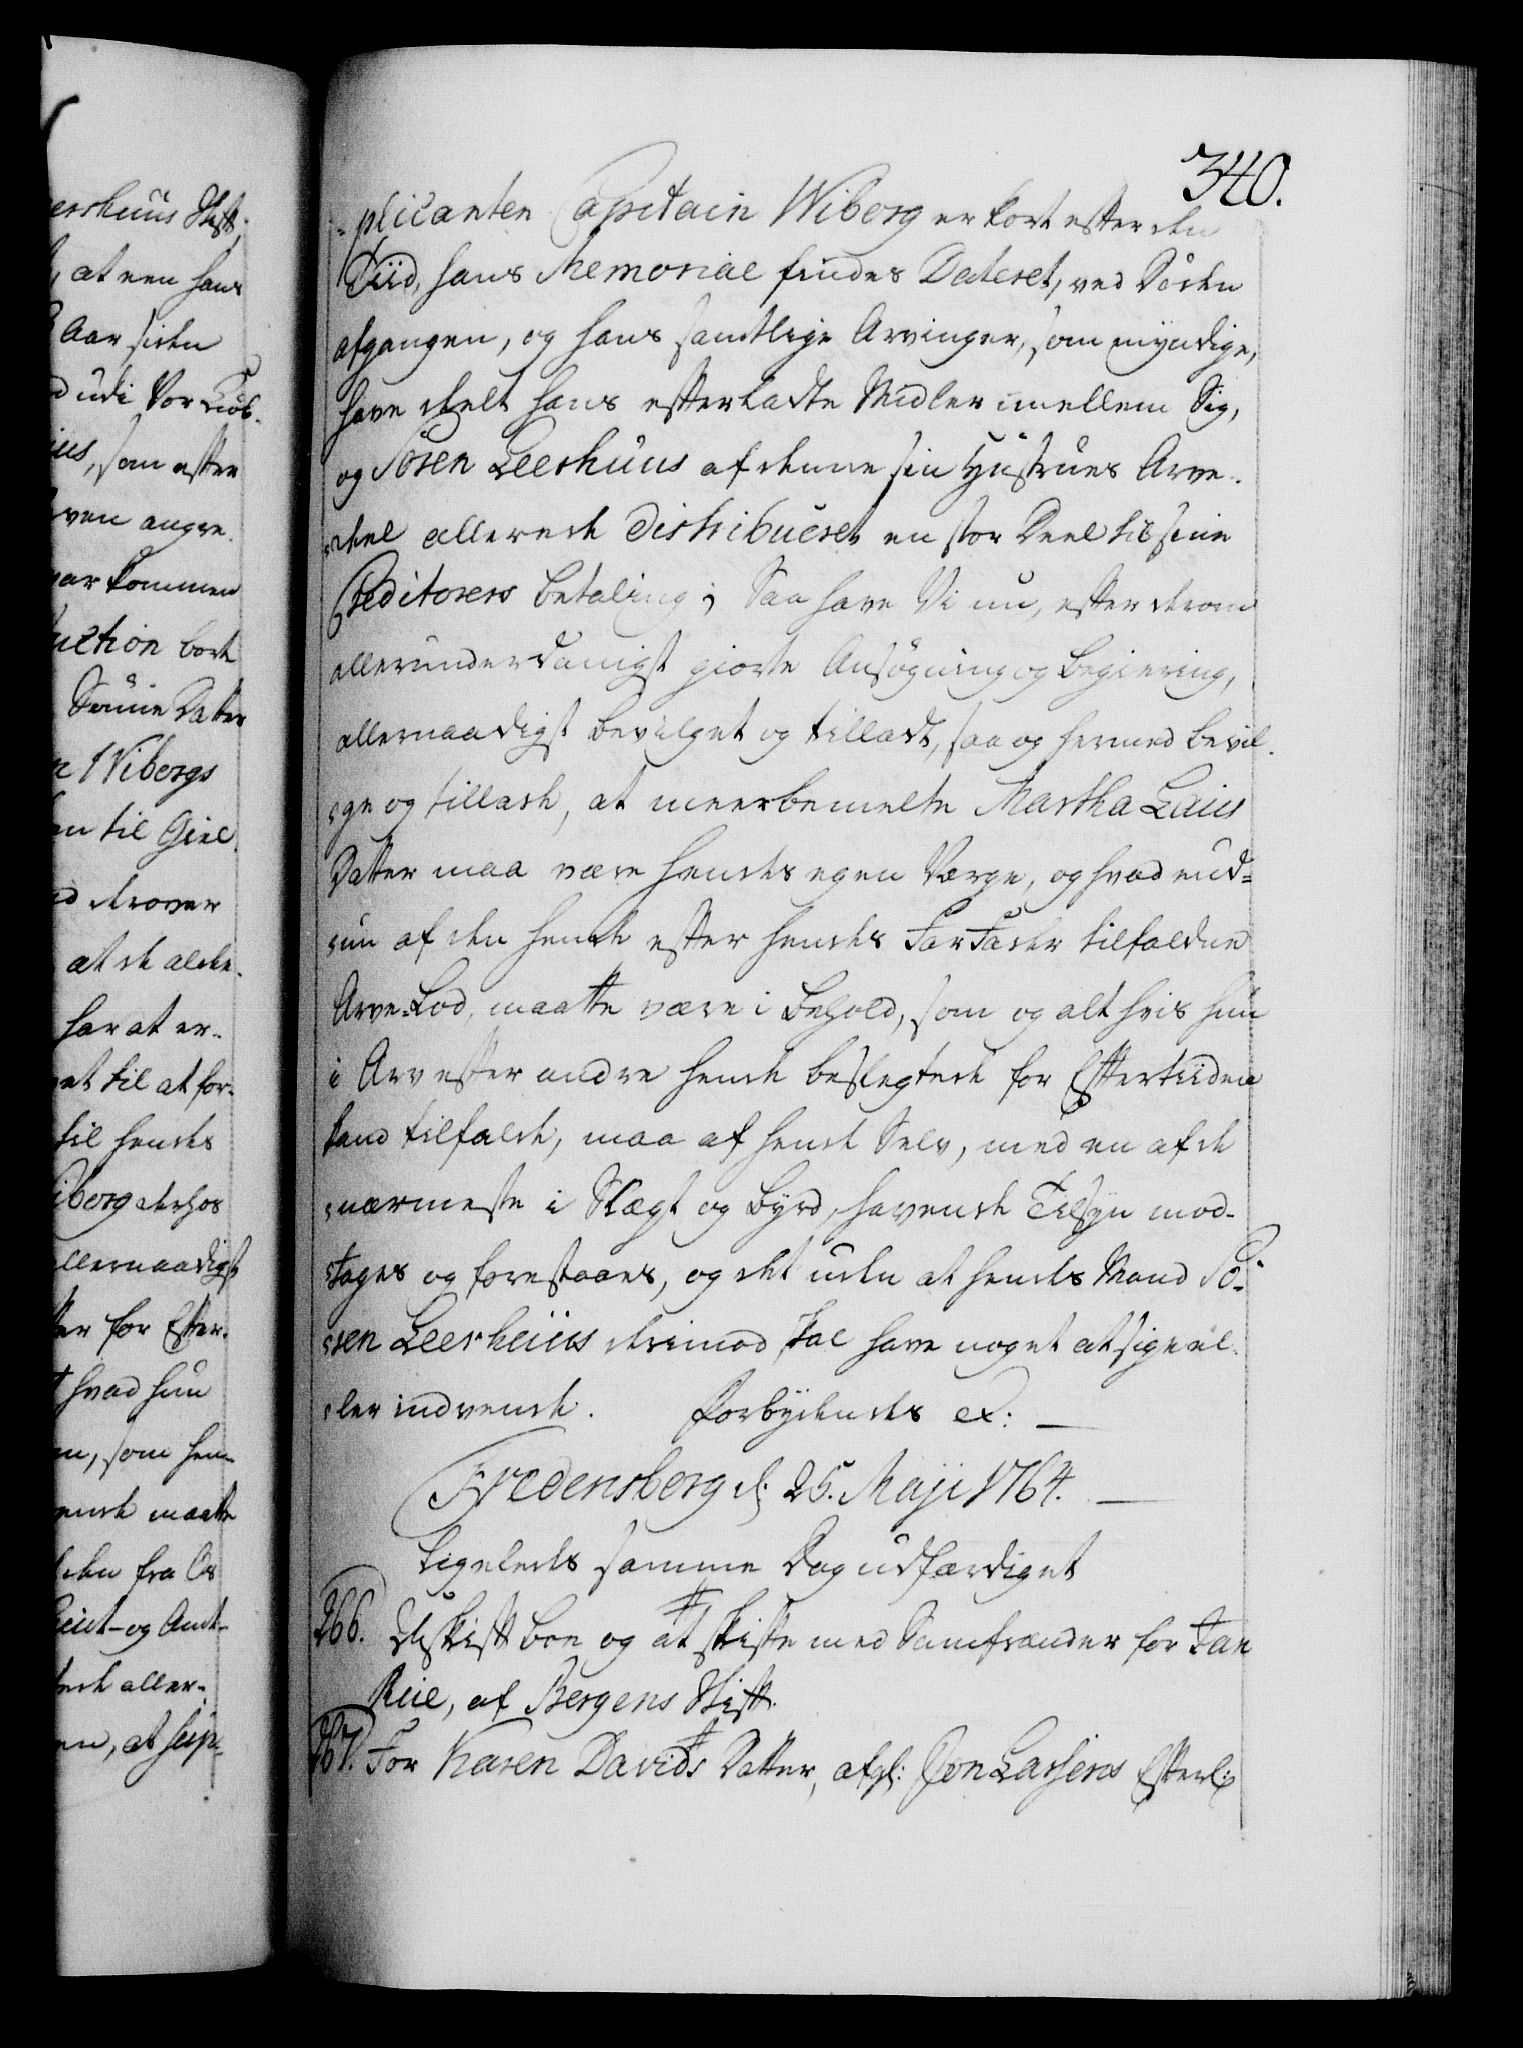 340.
-plicanten Capitain Wiberg er kort efter den
Tiid, hans Memorial findes Dateret, ved Døden
afgangen, og hans samtlige Arvinger, som myndige,
have deelt hans efterladte Midler imellem Sig,
og Søren Leerhuus af denne sin Hustrues Arve-
deel allerede distribueret en stor Deel til sine
Creditorers betaling; Saa have Vi nu, efter derom
allerunderdanigst giorte Ansøgning og begiering,
allernaadigst bevilget og tilladt, saa og hermed bevil-
ge og tillade, at meerbemelte Martha Laus
Datter maa være hendes egen Værge, og hvad end-
nu af den hende efter hendes FarFader tilfaldne
Arve-Lod, maatte være i behold, som og alt hvis hun
i Arv efter andre hende beslegtede for Eftertiiden
kand tilfalde, maa af hende Selv, med en af de
nærmeste i Slægt og byrd, havende Tilsyn mod-
tages og forestaaes, og det uden at hendes Mand Sö-
ren Leerhuus derimod skal have noget at sige el-
ler indvende. Forbydendes etc: —
Fredensberg d. 25. Maji 1764. —
Ligeledes samme Dag udfærdiget
266. Uskift boe og at skifte med Samfrænder for Jan
Rue, af Bergens Stift.
267. For Karen Davids Datter, afgl: Jon Larsens Efterl:
ershuus Stift.
, at een hans
Aar siden
d udi Vor Kiøb-
, som efter
rven angre-
var kommen
uction bort
Sønne Datter
Wibergs
en til Giel
d derover
at de alde-
har at er-
et til at for-
til hendes
iberg derhos
llernaadigst
ter for Efter-
hvad hun
en, som hen-
ende maatte
den fra Os
og Amt-
aller-
en, at Sup-